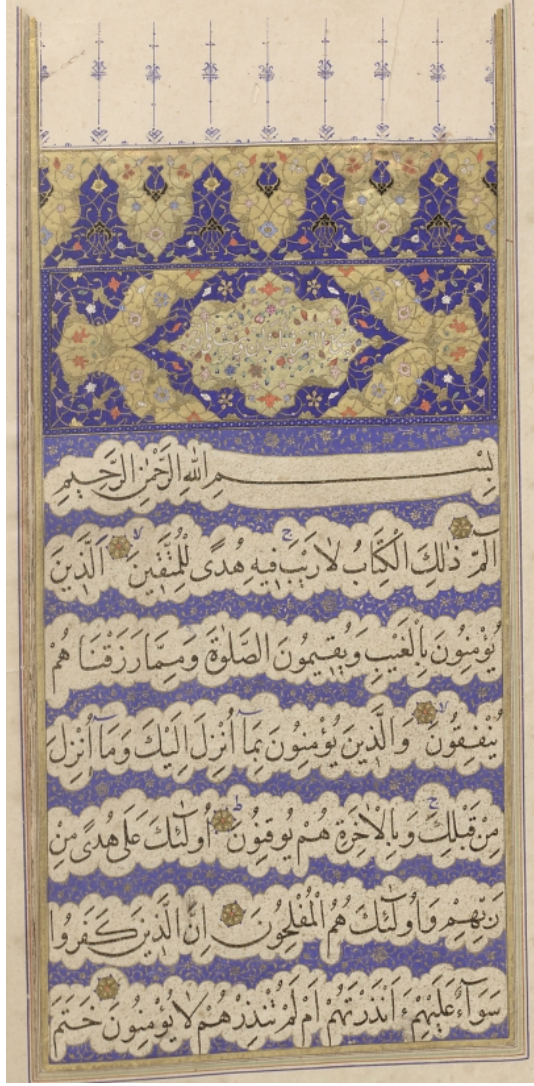 بِسْمِ اللّٰهِ الرَّحْمٰنِ الرَّحِيمِ
الٓمٓ ذٰلِكَ الْكِتَابُ لَا رَيْبَ ۛ ج فِيهِ هُدًى لِلْمُتَّقِينَ لا اَلَّذِينَ
يُؤْمِنُونَ بِالْغَيْبِ وَيُقِيمُونَ الصَّلٰوةَ وَمِمَّا رَزَقْنَا هُمْ
يُنْفِقُونَ لا وَالَّذِينَ يُؤْمِنُونَ بِمَٓا اُنْزِلَ اِلَيْكَ وَمَٓا اُنْزِلَ
مِنْ قَبْلِكَ ج وَبِالْاٰخِرَةِ هُمْ يُوقِنُونَ ط اُولٰٓئِكَ عَلٰى هُدًى مِنْ
رَبِّهِمْ وَاُولٰٓئِكَ هُمُ الْمُفْلِحُونَ اِنَّ الَّذِينَ كَفَرُوا
سَوَٓاءٌ عَلَيْهِمْ ءَاَنْذَرْتَهُمْ اَمْ لَمْ تُنْذِرْهُمْ لَا يُؤْمِنُونَ خَتَمَ